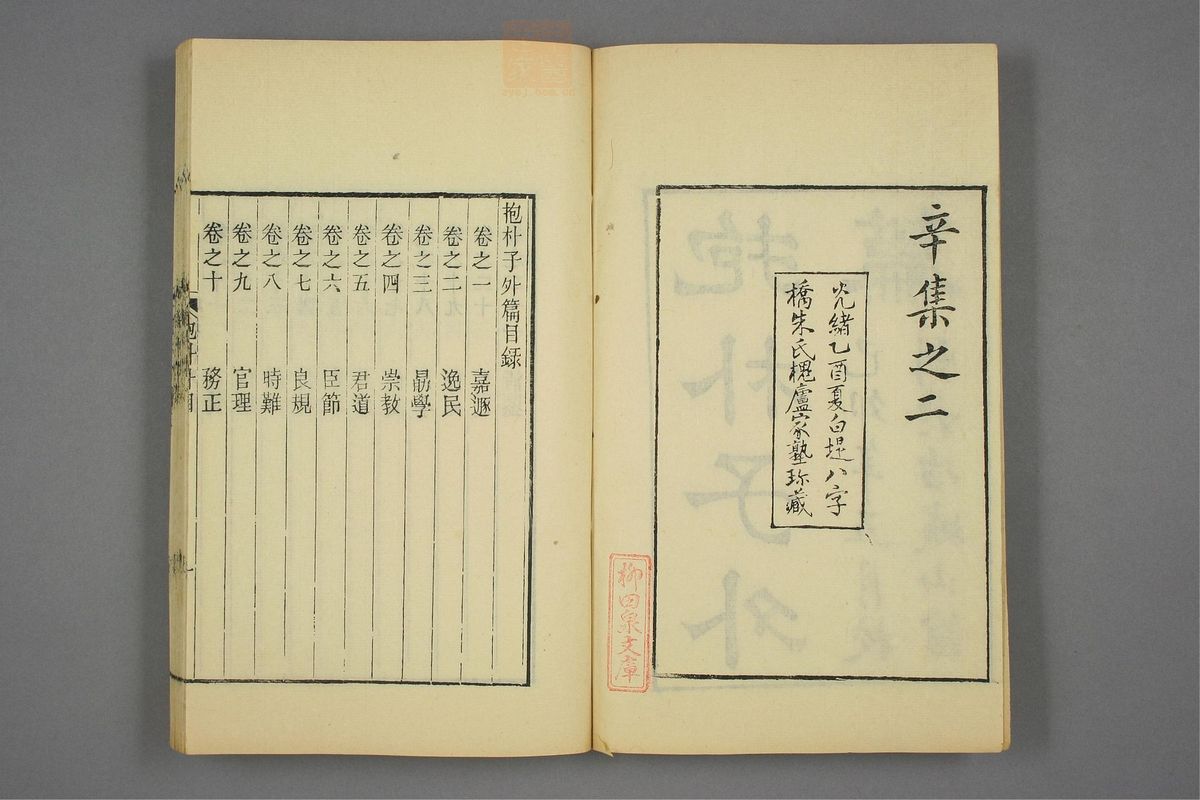 辛集之二
光緒乙酉夏白堤八字
橋朱氏槐廬家塾珍藏
柳田泉文庫
抱朴子外篇目録
卷之一 嘉遯
卷之二 逸民
卷之三 勗學
卷之四 崇教
卷之五 君道
卷之六 臣節
卷之七 良規
卷之八 時難
卷之九 官理
卷之十 務正